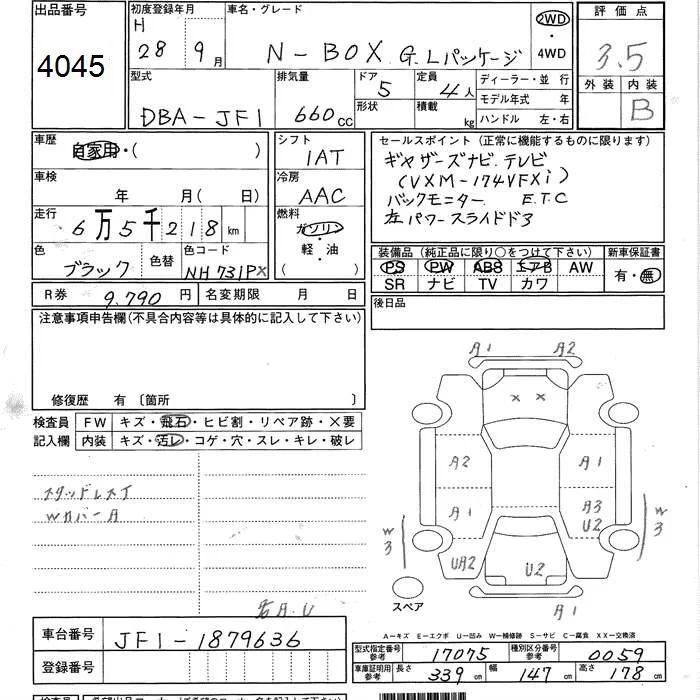 出品番号
4045
初度登録年月
H
28 9月
車名・グレード
N-BOX G.Lパッケージ
2WD
・
4WD
評価点
3.5
外装 内装
B
型式
DBA-JF1
排気量
660cc
ドア
5
形状
定員
4人
積載
kg
ディーラー・並行
モデル年式 年
ハンドル 左・右
車歴
自家用・( )
シフト
IAT
セールスポイント(正常に機能するものに限ります)
ギャザーズナビ.テレビ
(VXM-174VFXi)
バックモニター E.T.C
左パワースライドドア
車検
年 月( 日)
冷房
AAC
走行
6万5千218km
燃料
ガソリン
・
軽・油
( )
色
ブラック
色替
色コード
NH731PX
装備品(純正品に限り○をつけて下さい)
PS PW ABS エアB AW
SR ナビ TV カワ
新車保証書
有・無
R券 9.790円
名変期限 月 日
後日品
注意事項申告欄(不具合内容等は具体的に記入して下さい)
修復歴 有〔箇所 〕
検査員
記入欄
FW キズ・飛石・ヒビ割・リペア跡・×要
内装 キズ・汚レ・コゲ・穴・スレ・キレ・破レ
スタッドレスT
Wカバー A
A1 A2
× ×
A2 A1
A1 A3
U2
W3 W3
UA2 U2
スペア
A1
A-キズ E-エクボ U-凹み W-補修跡 S-サビ C-腐食 XX-交換済
車台番号
JF1-1879636
登録番号
型式指定番号
参考
17075
種別区分番号
参考
0059
車庫証明用
参考
長さ 339cm 幅 147cm 高さ 178cm